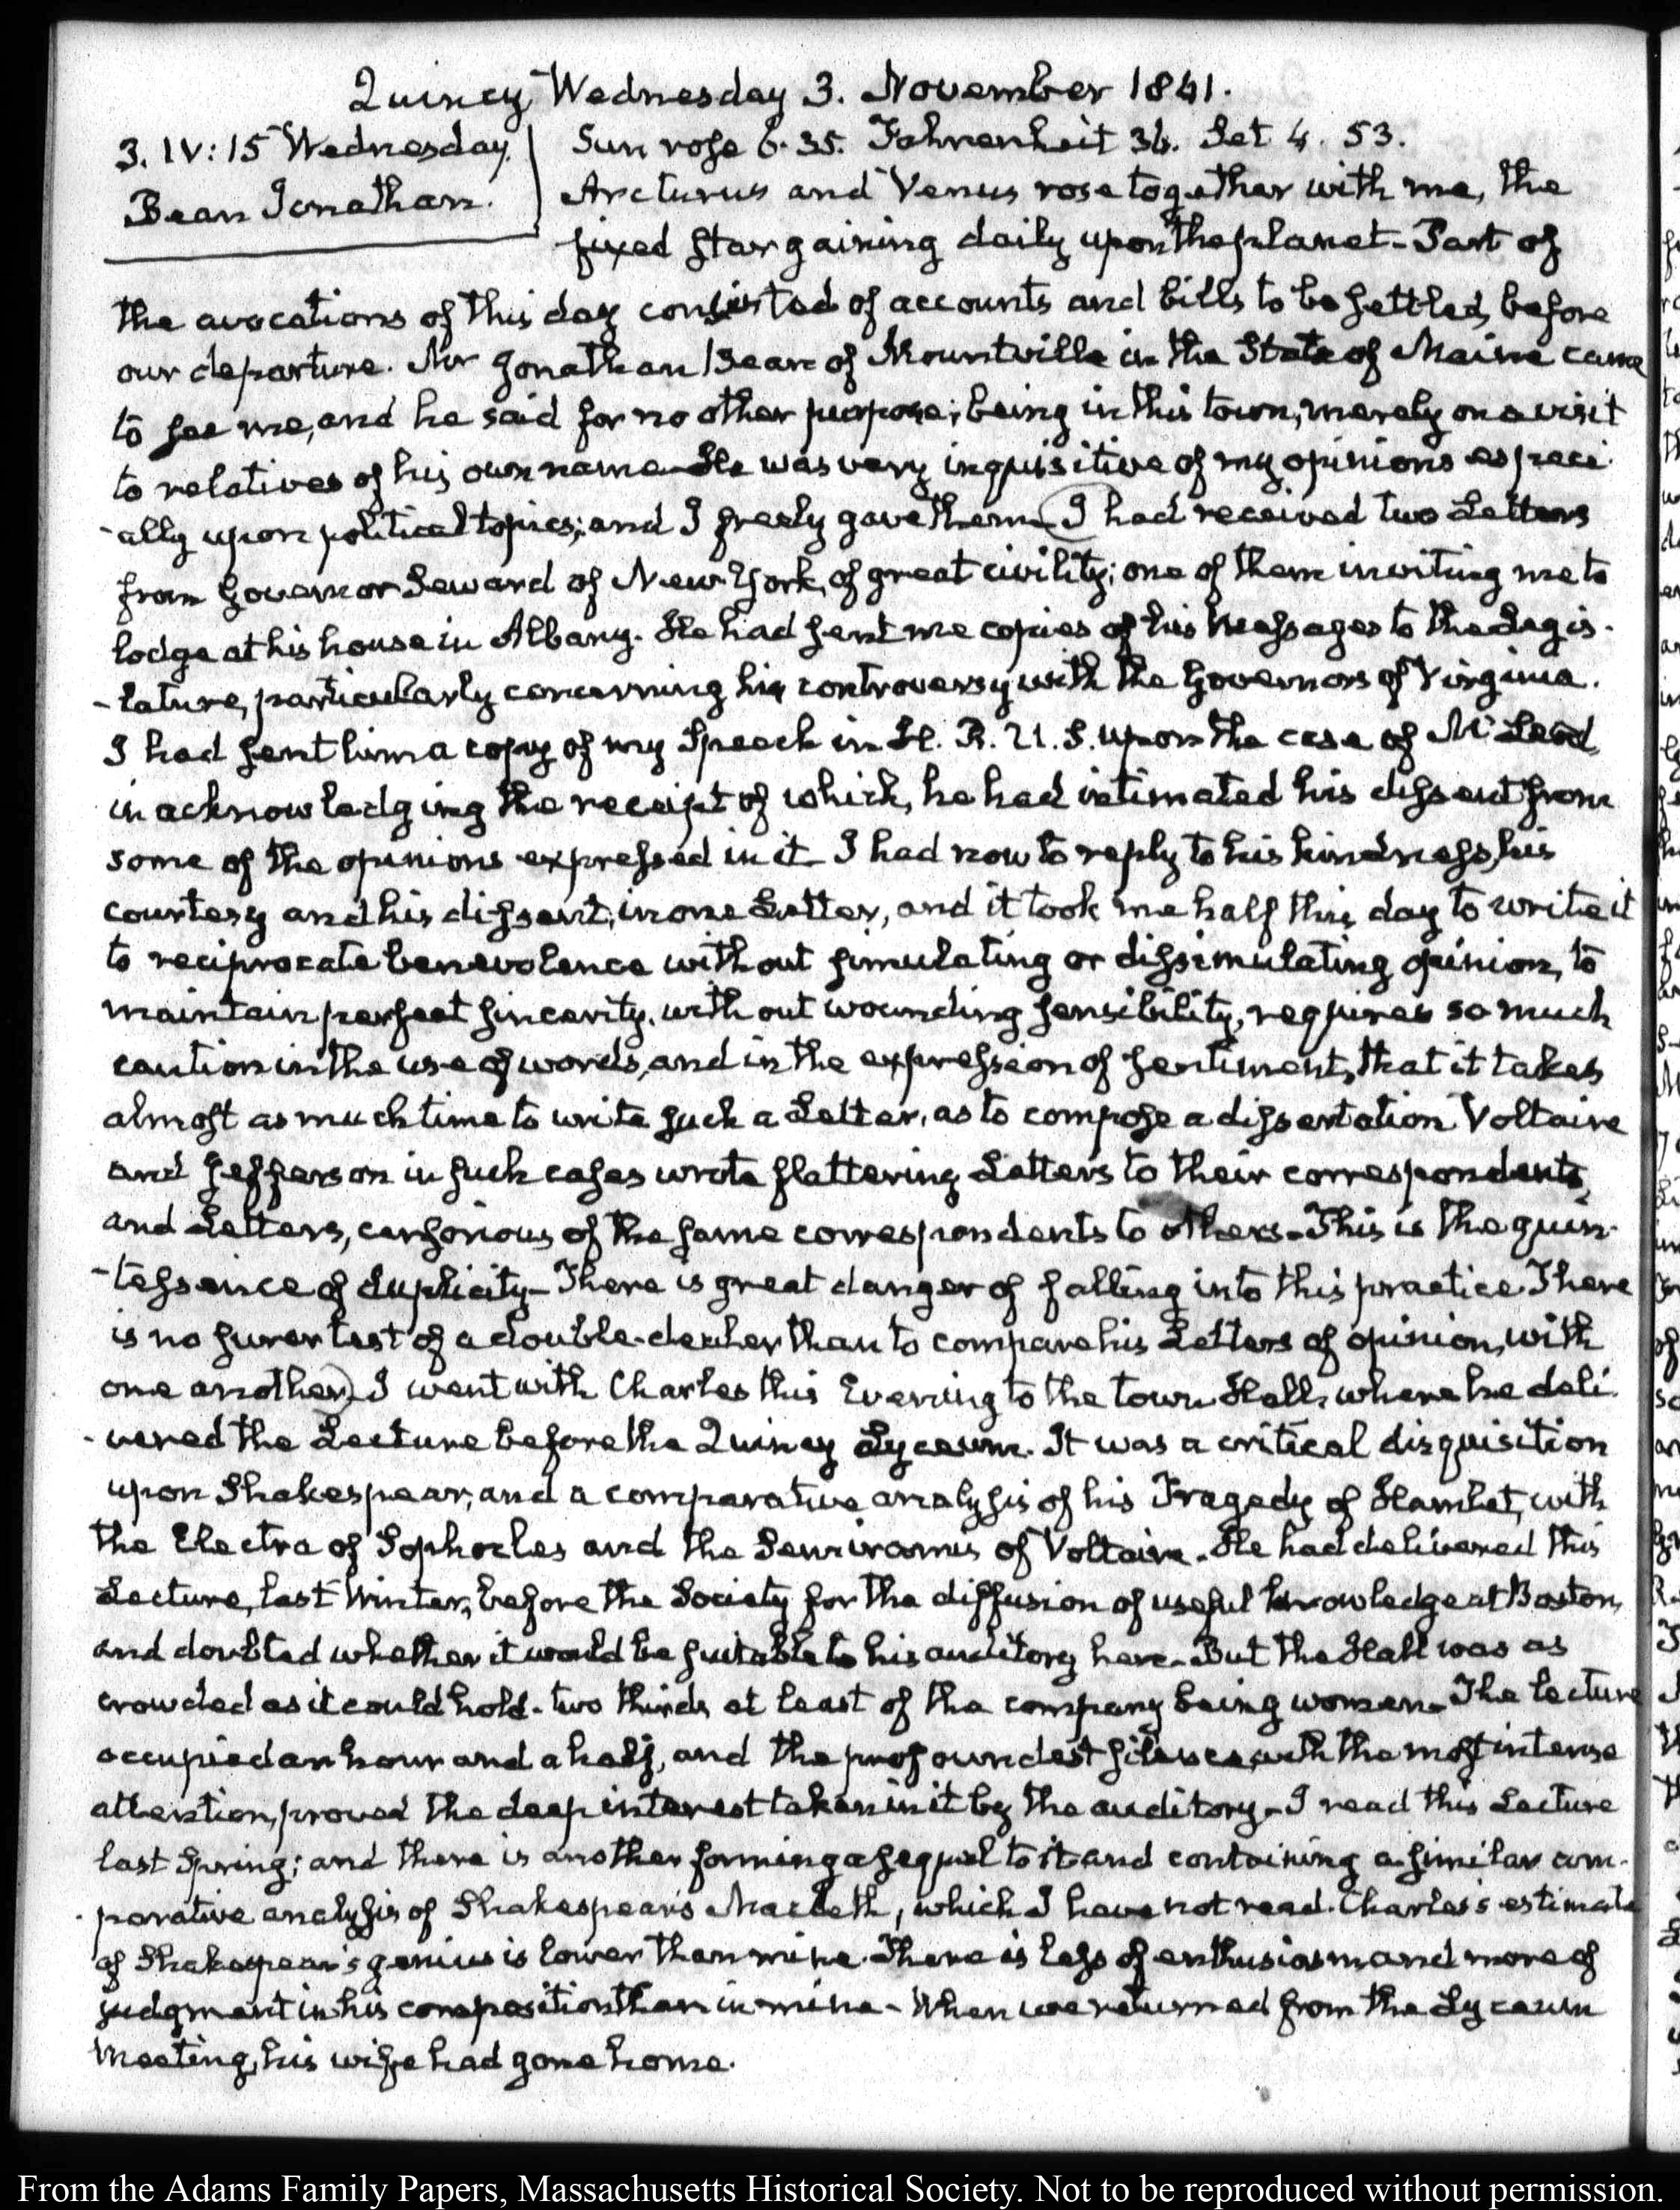 Quincy Wednesday 3. November 1841.
3. IV:15 Wednesday.
Bean Jonathan.
Sun rose 6.35. Fahrenheit 36. Set 4. 53.
Arcturus and Venus rose together with me, the
fixed star gaining daily upon the planet- Part of
the avocations of this day consisted of accounts and bills to be settled, before
our departure. Mr Jonathan Bean of Mountville in the State of Maine came
to see me, and he said for no other purpose; being in this town, merely on a visit
to relatives of his own name- He was very inquisitive of my opinions especi-
-ally upon political topics; and I freely gave them- I had received two Letters
from Governor Seward of New-York, of great civility; one of them inviting me to
lodge at his house in Albany. He had sent me copies of his Messages to the Legis-
-lature, particularly concerning his controversy with the Governors of Virginia.
I had sent him a copy of my Speech in H. R. U. S. upon the case of McLeod,
in acknowledging the receipt of which, he had intimated his dissent from
some of the opinions expressed in it- I had now to reply to his kindness, his
courtesy and his dissent, in one Letter, and it took me half this day to write it
to reciprocate benevolence without simulating or dissimulating opinion, to
maintain perfect sincerity, without wounding sensibility, requires so much
caution in the use of words, and in the expression of sentiment, that it takes
almost as much time to write such a Letter, as to compose a dissertation Voltaire
and Jefferson in such cases wrote flattering Letters to their correspondents,
and Letters, censorious of the same correspondents to others- This is the quin-
-tessence of duplicity- There is great danger of falling into this practice. There
is no surer test of a double-dealer than to compare his Letters of opinion, with
one another- I went with Charles this Evening to the town Hall, where he deli-
-vered the Lecture before the Quincy Lyceum. It was a critical disquisition
upon Shakespear, and a comparative analysis of his Tragedy of Hamlet, with
the Electra of Sophocles and the Semiramis of Voltaire. He had delivered this
Lecture, last Winter, before the Society for the diffusion of useful knowledge at Boston,
and doubted whether it would be suitable to his auditory here- But the Hall was as
crowded as it could hold- two thirds at least of the company being women- The lecture
occupied an hour and a half, and the profoundest silence, with the most intense
attention, proved the deep interest taken in it by the auditory- I read this Lecture
last Spring; and there is another forming a sequel to it and containing a similar com-
-parative analysis of Shakespear's Macbeth, which I have not read. Charles's estimate
of Shakespear's genius is lower than mine. There is less of enthusiasm and more of
judgment in his composition than in mine- When we returned from the Lyceum
Meeting, his wife had gone home.
From the Adams Family Papers, Massachusetts Historical Society. Not to be reproduced without permission.